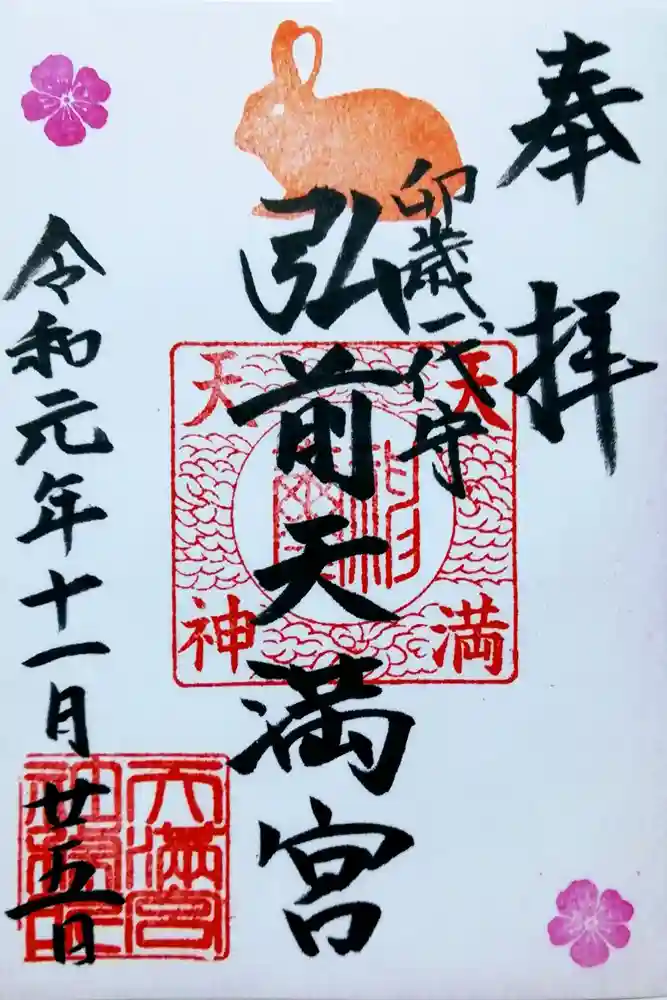 奉拝
卯歳一代守
弘前天満宮
天満
天神
令和元年十一月廿五日
天満宮